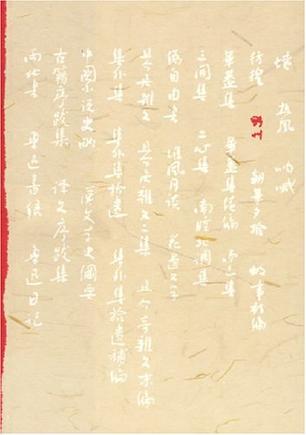 墳 热風 呐喊
彷徨 野草 朝華夕拾 故事新编
華蓋集 華蓋集续编 而已集
三閒集 二心集 南腔北调集
偽自由書 准風月谈 花邊文学
且介亭雜文 且介亭雜文二集 且介亭雜文末编
集外集 集外集拾遺 集外集拾遺補编
中國小说史略 漢文学史綱要
古籍序跋集 译文序跋集
兩地書 鲁迅書信 鲁迅日記